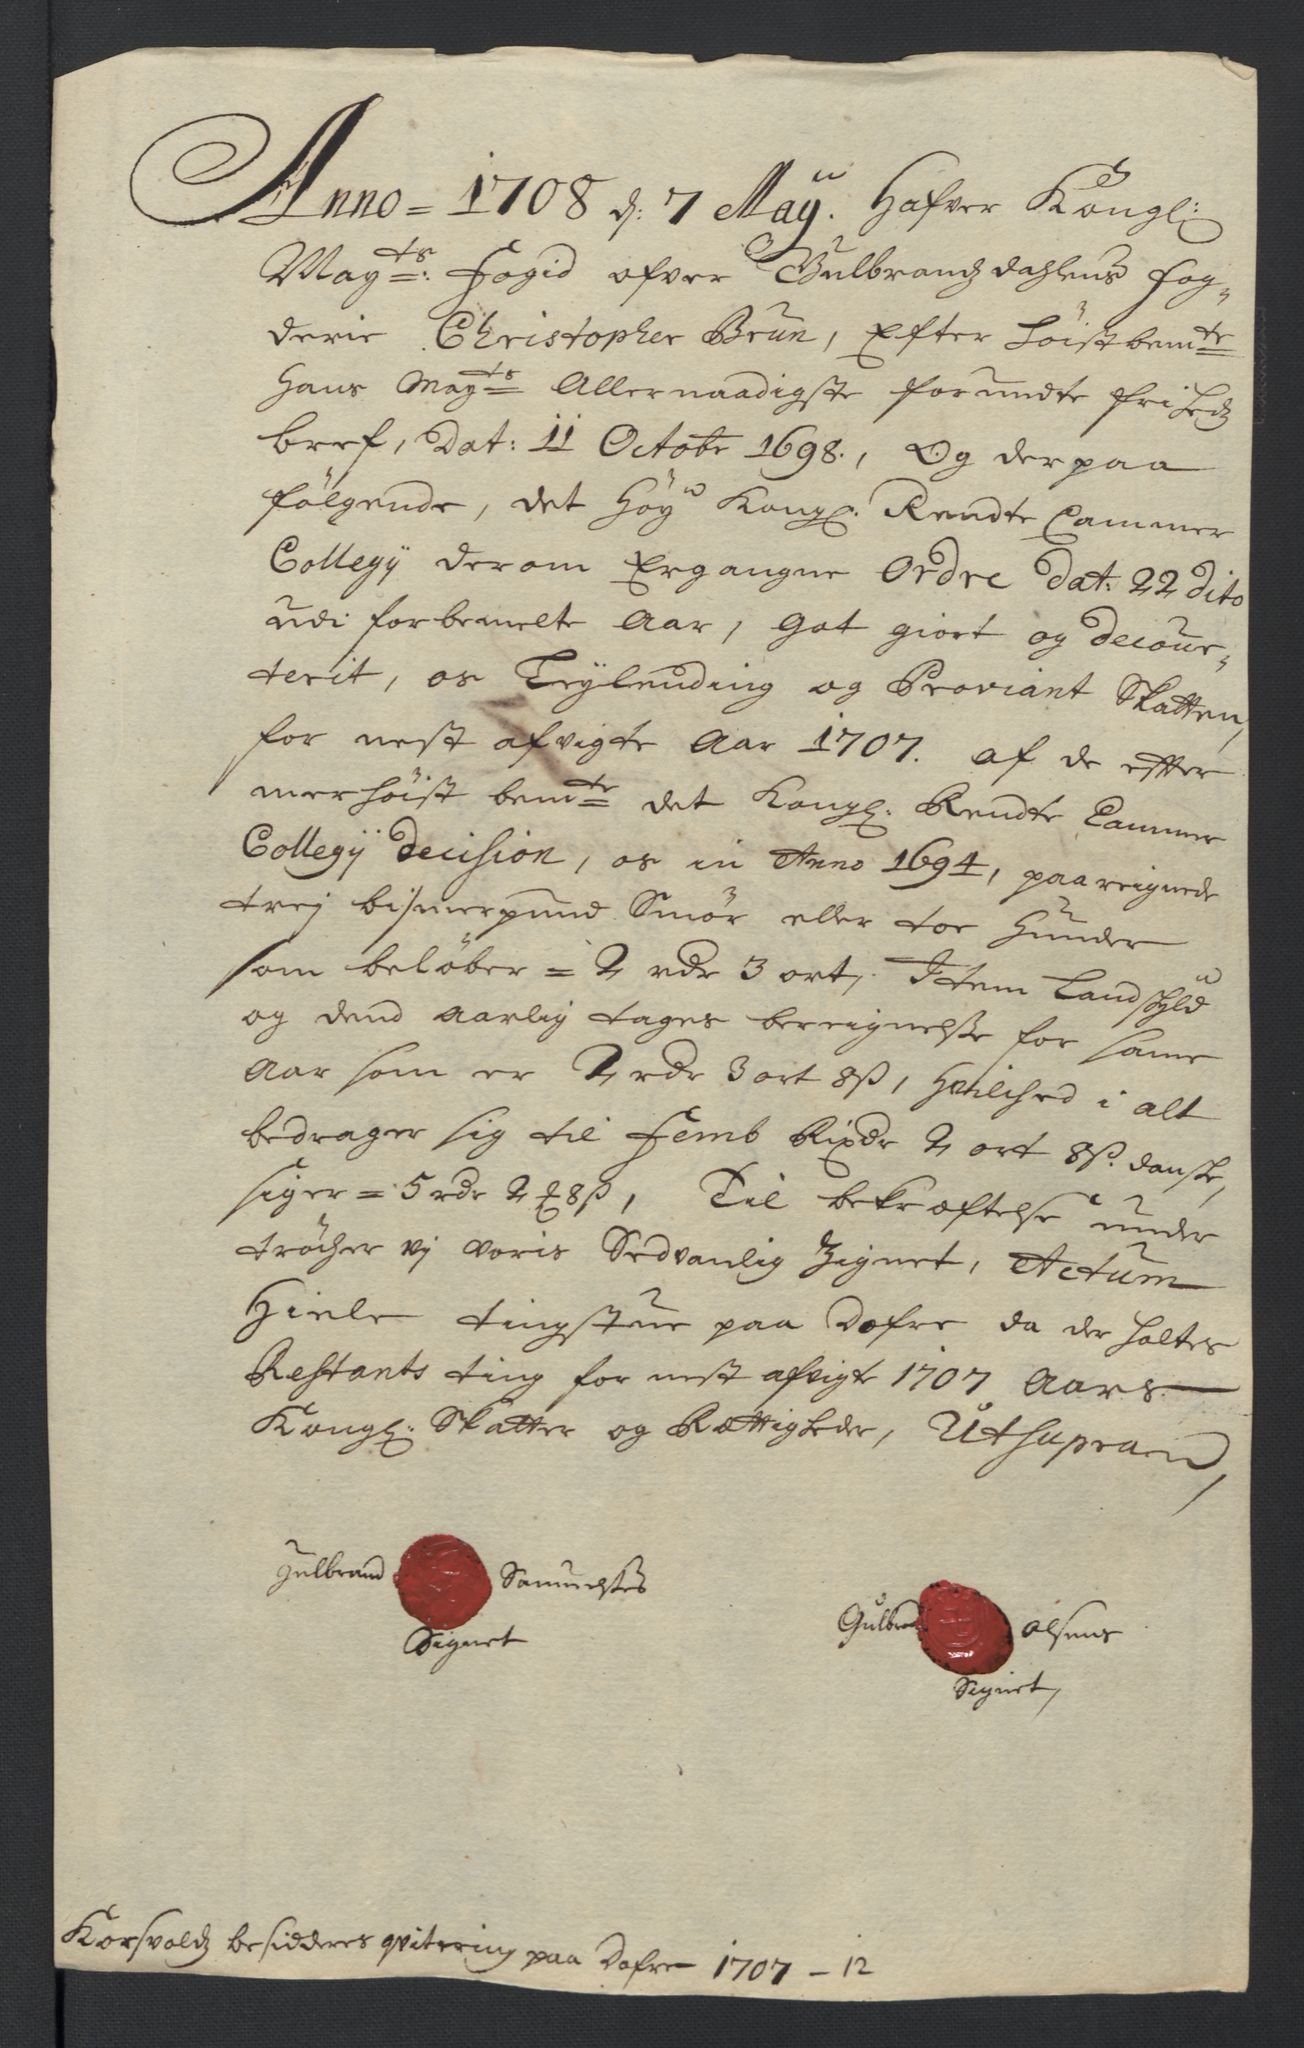 Anno = 1708 d: 7 Maÿ. Hafver Kongl:
Maÿts: Fogid ofver Gulbrandsdahlens Fog-
derie Christopher Brun, Efter höistbemte
Hans Mayts Allernaadigste forundte frihedz
bref, Dat: 11 Octobr 1698., Og der paa
følgende, det Höy Kongl. Rendte Cammer
Collegÿ derom Ergangne Ordre Dat: 22 dito
udi forbemelte Aar, got giort og decour-
terit, os Leÿlending og Proviant Skatten,
for nest afvigte Aar 1707. af de efter
merhöist bemte det Kongl. Rendte Cammer
Collegÿ Decision, os in Anno 1694, paareignede
trej bismerpund Smör eller toe Hunder
som belöber = 2 rdr 3 ort, Item Landskyld
og dend Aarlig tages bereignelse for same
Aar som er 2 rdr 3 ort 8ß, Hvilched i alt
bedrager sig til Femb Rixdr 2 ort 8ß. danske,
siger = 5 rdr 2 8ß, Til bekræftelse under
tröcher vj voris Sedvanlig Zignet, Actum
Hiele tingstue paa Dofre da der holtes
Restants ting for nest afvigte 1707 Aars
Kongl: Skatter og Rættighede, Ut supra
Gulbrand Samuelses
Signet
Gulbrand Olsens
Signet,
Korsvolds besidderes qvitering paa Dofre 1707 – 12